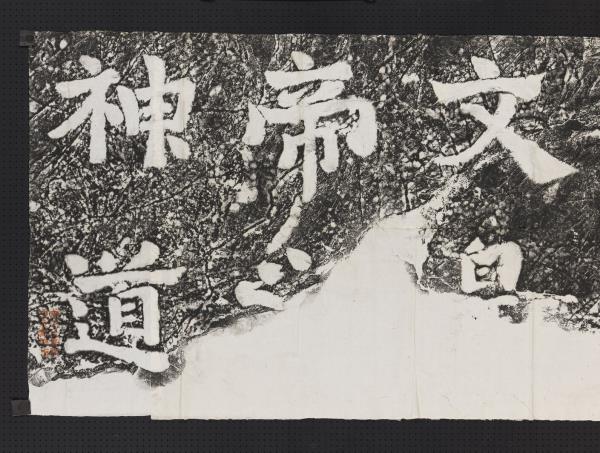 文皇
帝之
神道